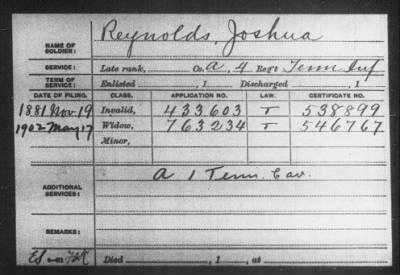 Reynolds, Joshua
NAME OF SOLDIER:
SERVICE: Late rank, Co. A, 4 Reg't Tenn Inf
TERM OF SERVICE: Enlisted , 1 Discharged , 1
DATE OF FILING. CLASS. APPLICATION NO. LAW. CERTIFICATE NO.
1881 Nov 19 Invalid, 433603 T 538899
1902 May 17 Widow, 763234 T 546767
Minor,
ADDITIONAL SERVICES: A 1 Tenn. Cav.
REMARKS:
Died , 1 , at